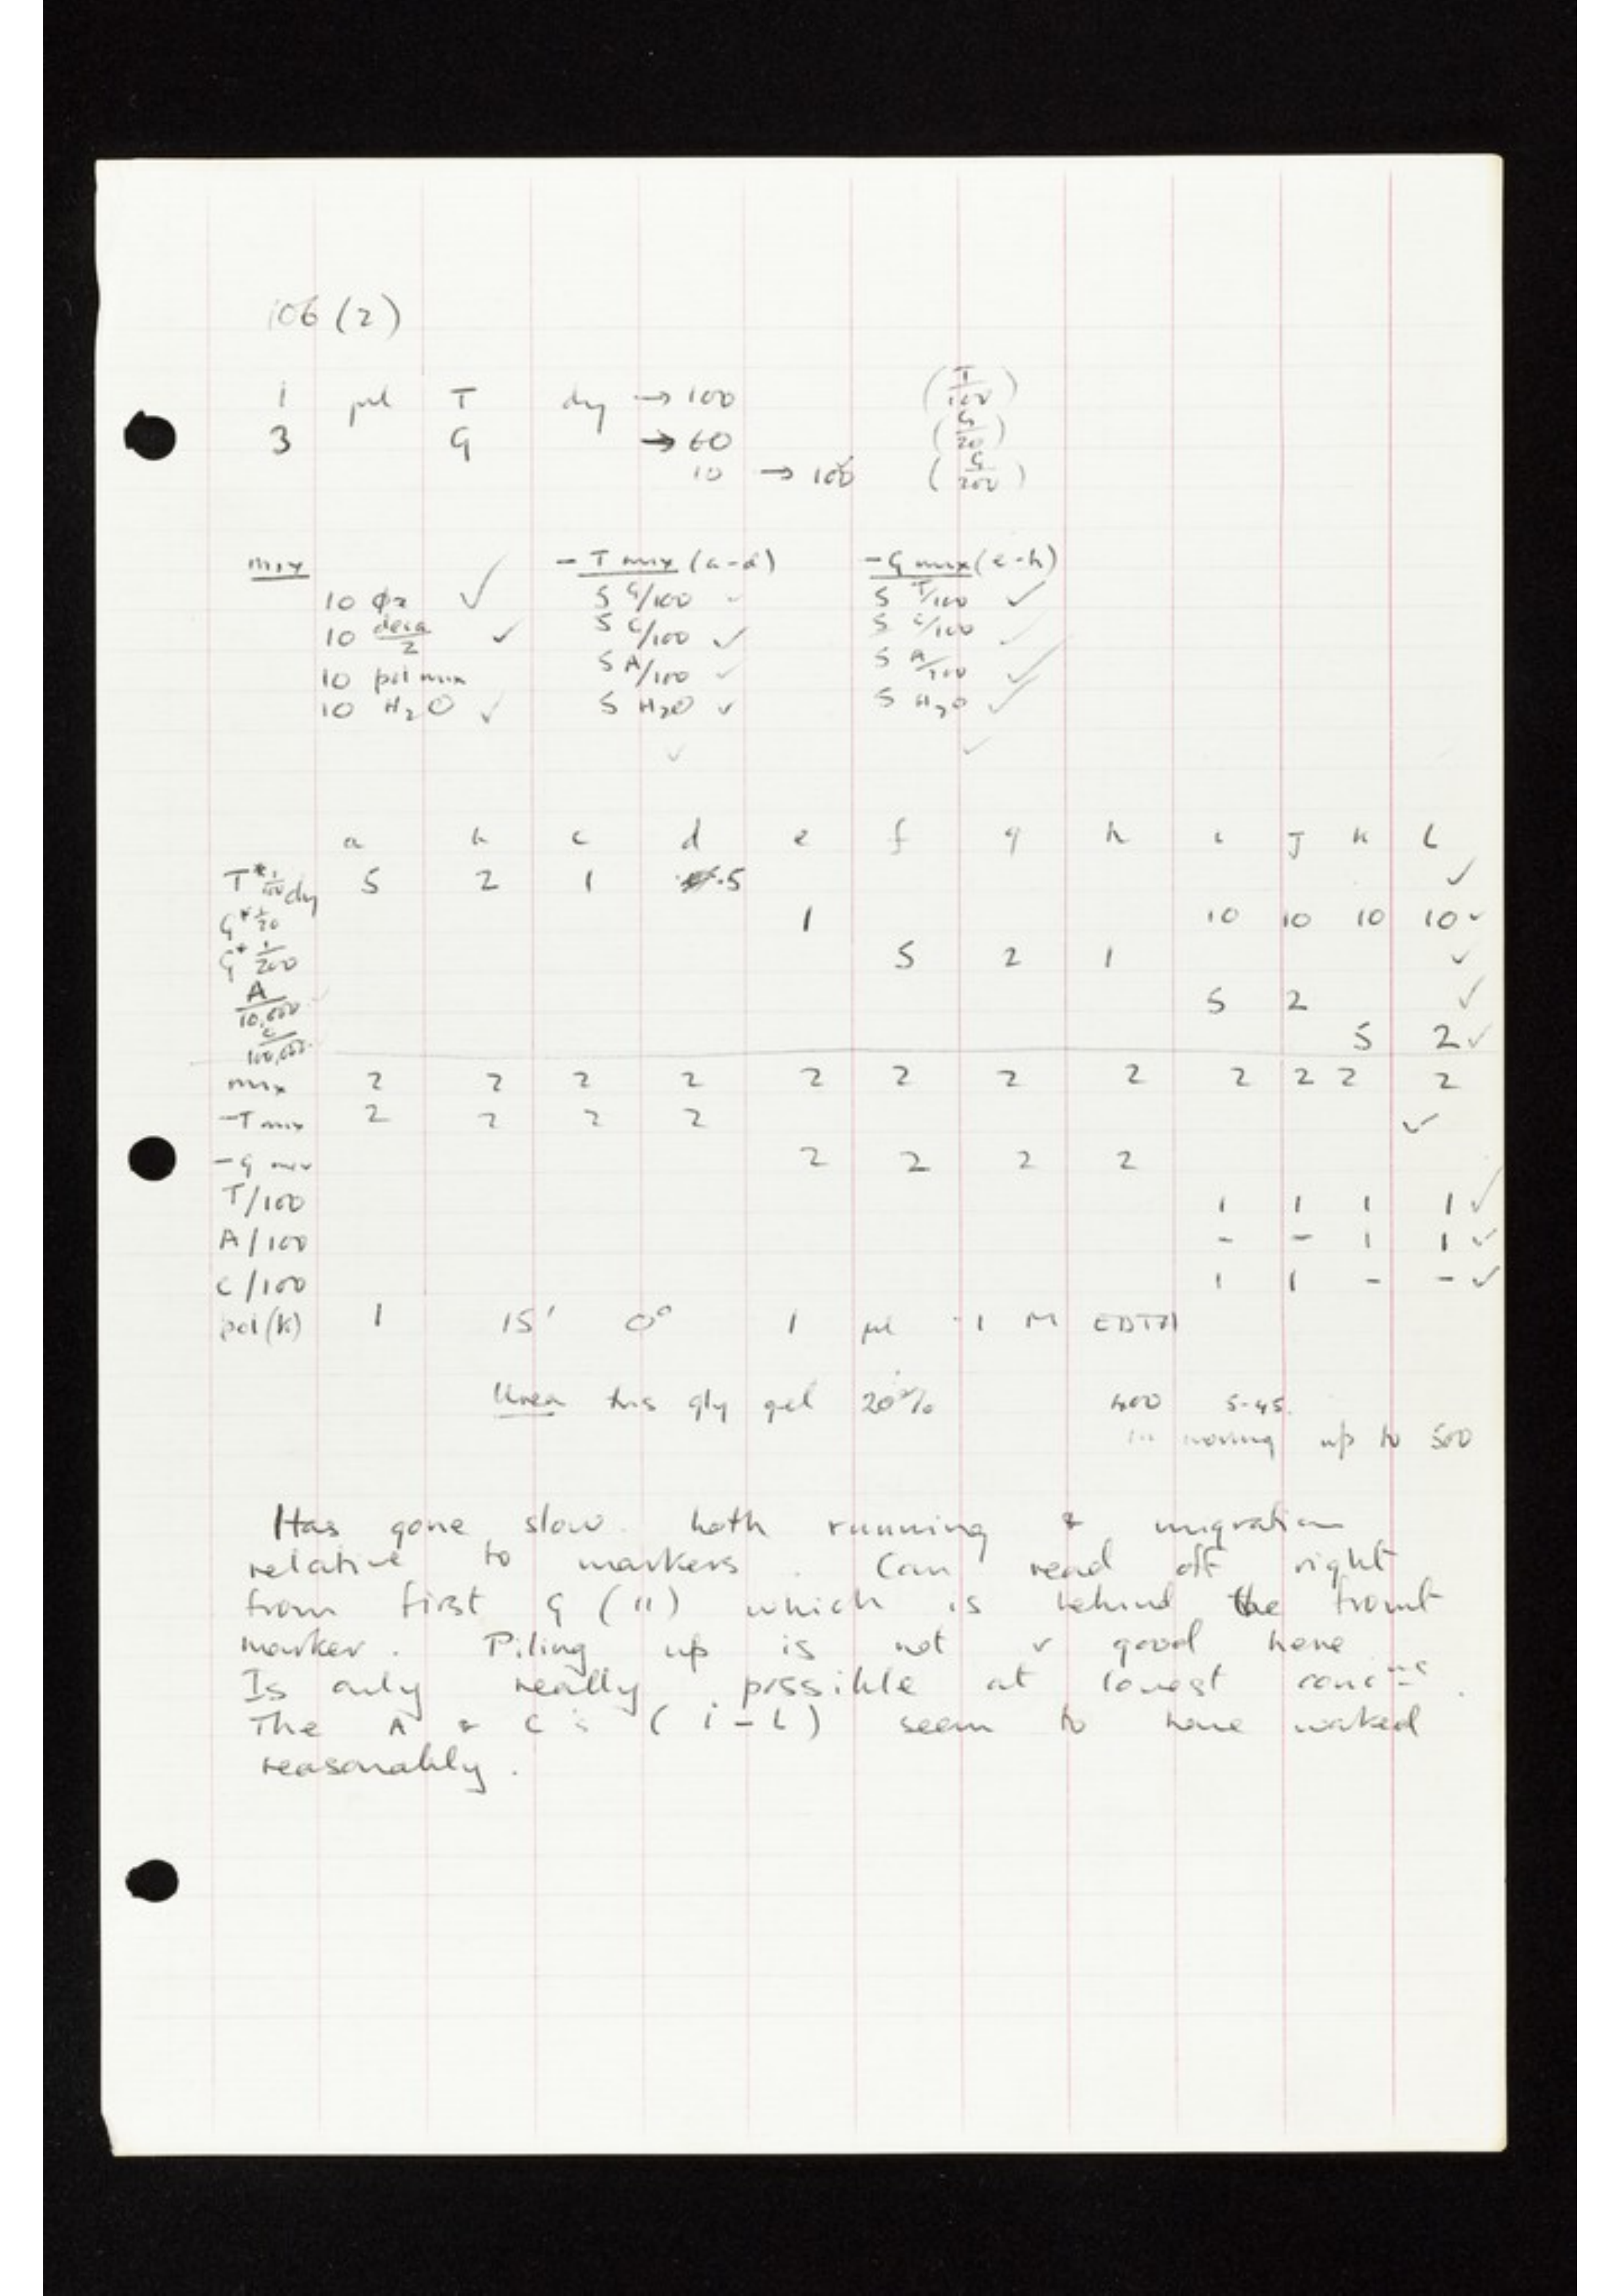 106 (2)
1 μl T dry → 100 (T/100)
3 G → 60 (G/20)
10 → 100 (G/200)
mix - T mix (a-d) - G mix (e-h)
10 φx ✓ 5 G/100 ✓ 5 T/100 ✓
10 deca/2 ✓ 5 C/100 ✓ 5 C/100 ✓
10 pol mix 5 A/100 ✓ 5 A/100 ✓
10 H2O ✓ 5 H2O ✓ 5 H2O ✓
✓ ✓
a b c d e f g h i J K L
T* 1/100 dry 5 2 1 .5 ✓
G* 1/20 1 10 10 10 10 ✓
G* 1/200 5 2 1 ✓
A/10,000 5 2 ✓
C/100,000 5 2 ✓
mix 2 2 2 2 2 2 2 2 2 2 2 2
-T mix 2 2 2 2 ✓
-G mix 2 2 2 2
T/100 1 1 1 1 ✓
A/100 - - 1 1 ✓
C/100 1 1 - - ✓
pol (K) 1 15' 0° 1 μl .1 M EDTA
Urea tris gly gel 20% 400 5-45.
moving up to 500
Has gone slow. both running & migration
relative to markers. Can read off right
from first G (11) which is behind the front
marker. Piling up is not v good here
Is only really possible at lowest concns.
The A & C's (i - L) seem to have worked
reasonably.